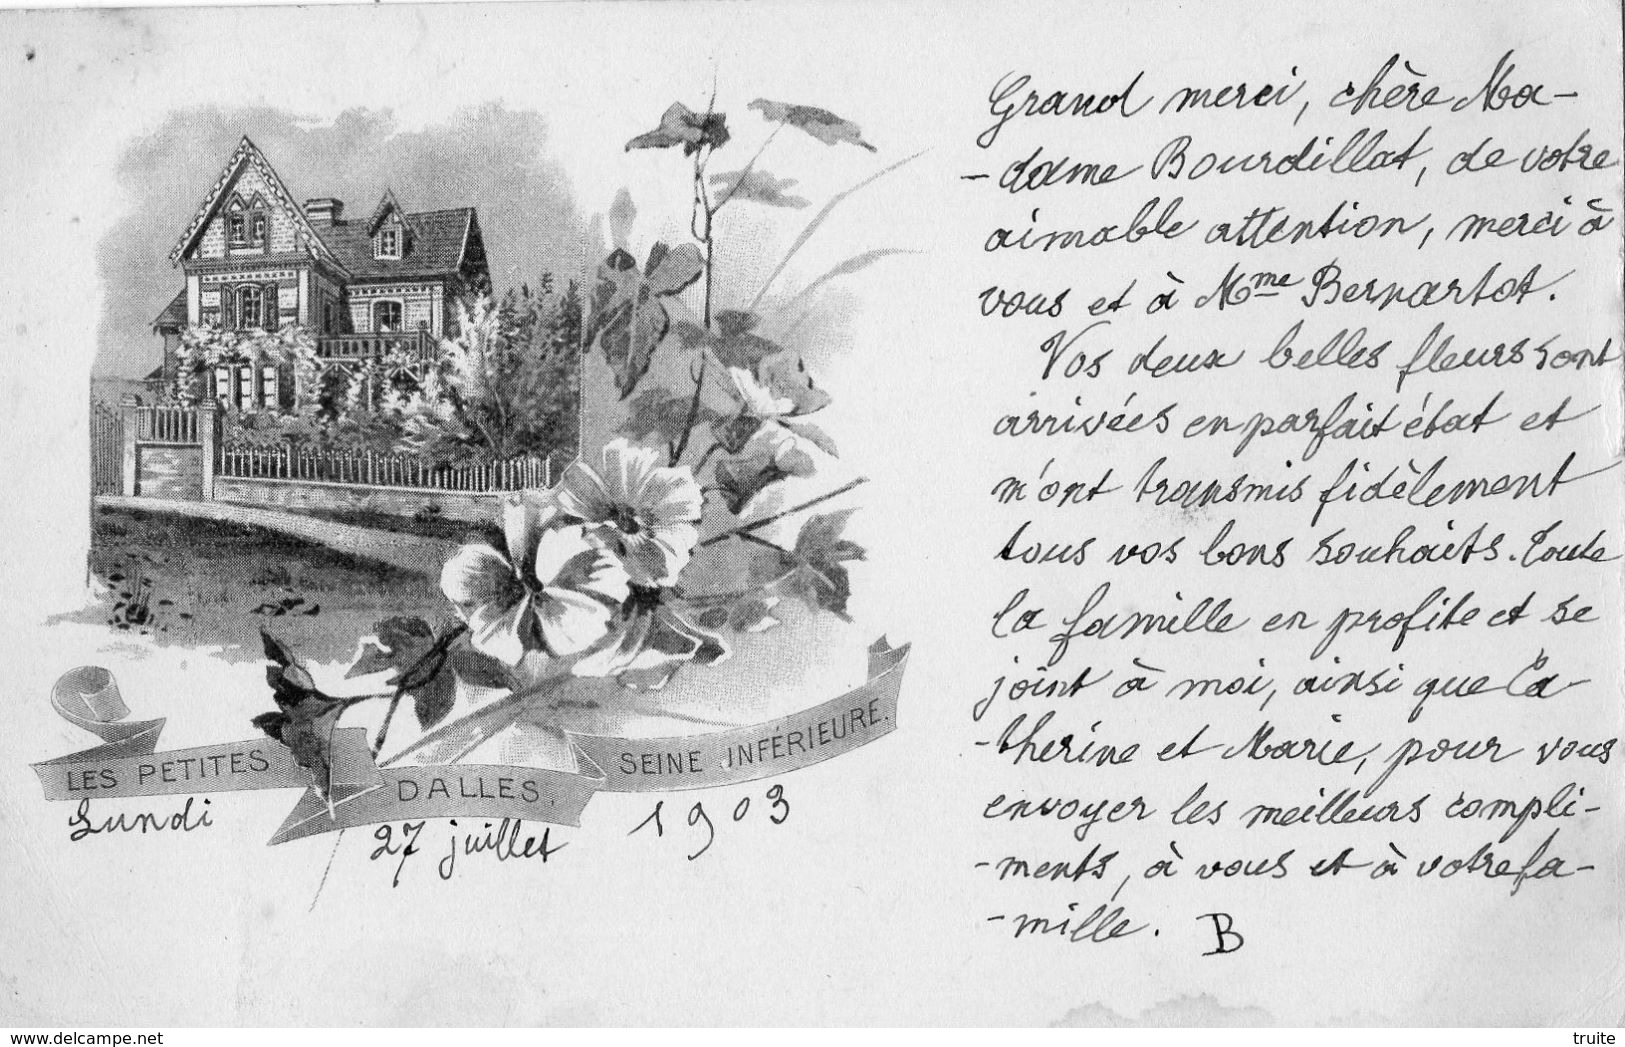 LES PETITES DALLES, SEINE INFÉRIEURE.
Lundi 27 juillet 1903
Grand merci, chère Ma-
-dame Bourdillat, de votre
aimable attention, merci à
vous et à Mme Bernartot.
Vos deux belles fleurs sont
arrivées en parfait état et
m'ont transmis fidèlement
tous vos bons souhaits. Toute
la famille en profite et se
joint à moi, ainsi que Ca-
-therine et Marie, pour vous
envoyer les meilleurs compli-
-ments, à vous et à votre fa-
-mille. B
delcampe.net
truite